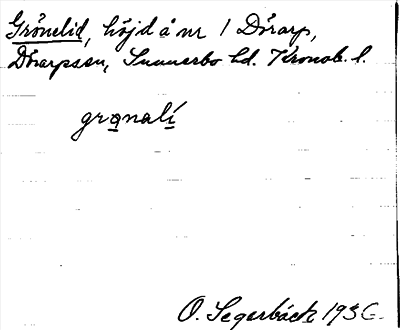 Grönelid, höjd å nr 1 Dörarp,
Dörarps sn, Sunnerbo hd. Kronob. l.
grønalí
O. Segerbäck 1936.